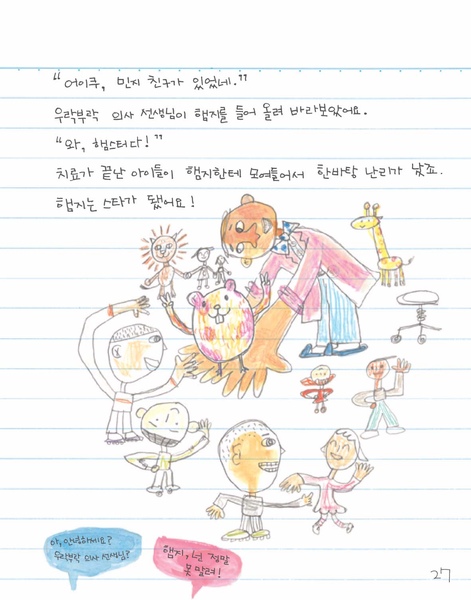 "어이쿠, 민지 친구가 있었네."
우락부락 의사 선생님이 햄지를 들어 올려 바라보았어요.
"와, 햄스터다!"
치료가 끝난 아이들이 햄지한테 모여들어서 한바탕 난리가 났죠.
햄지는 스타가 됐어요!
아, 안녕하세요?
우락부락 의사 선생님?
햄지, 넌 정말
못 말려!
27